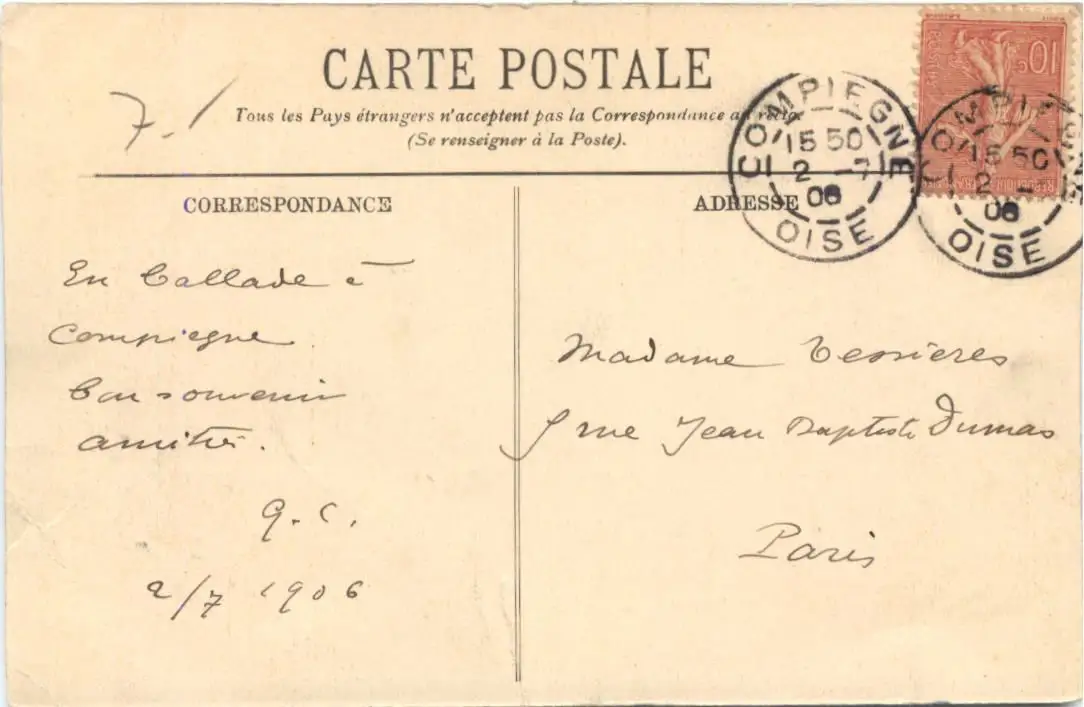 CARTE POSTALE
Tous les Pays étrangers n'acceptent pas la Correspondance au recto
(Se renseigner à la Poste).
7. /
CORRESPONDANCE
ADRESSE
COMPIEGNE
15 50
2 -7
06
OISE
COMPIEGNE
15 50
2
06
OISE
10 c
POSTES
En ballade à
Compiegne
bon souvenir
amitié.
G. C.
2/7 1906
Madame Tessieres
5 rue Jean Baptiste Dumas
Paris